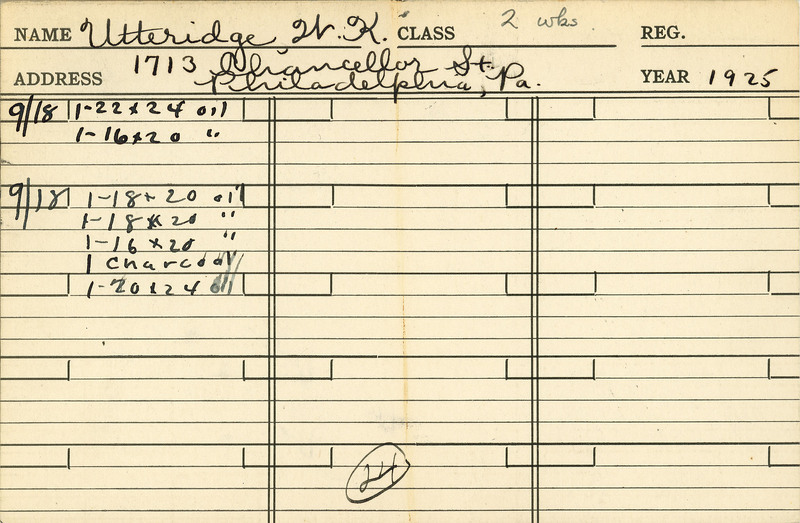 NAME Utteridge W. K. CLASS 2 wks. REG.
ADDRESS 1713 Chancellor St. Philadelphia, Pa. YEAR 1925
9/18 1-22x24 oil
1-16x20 "
9/18 1-18x20 oil
1-18x20 "
1-16x20 "
1 charcoal
1-20x24 oil
24